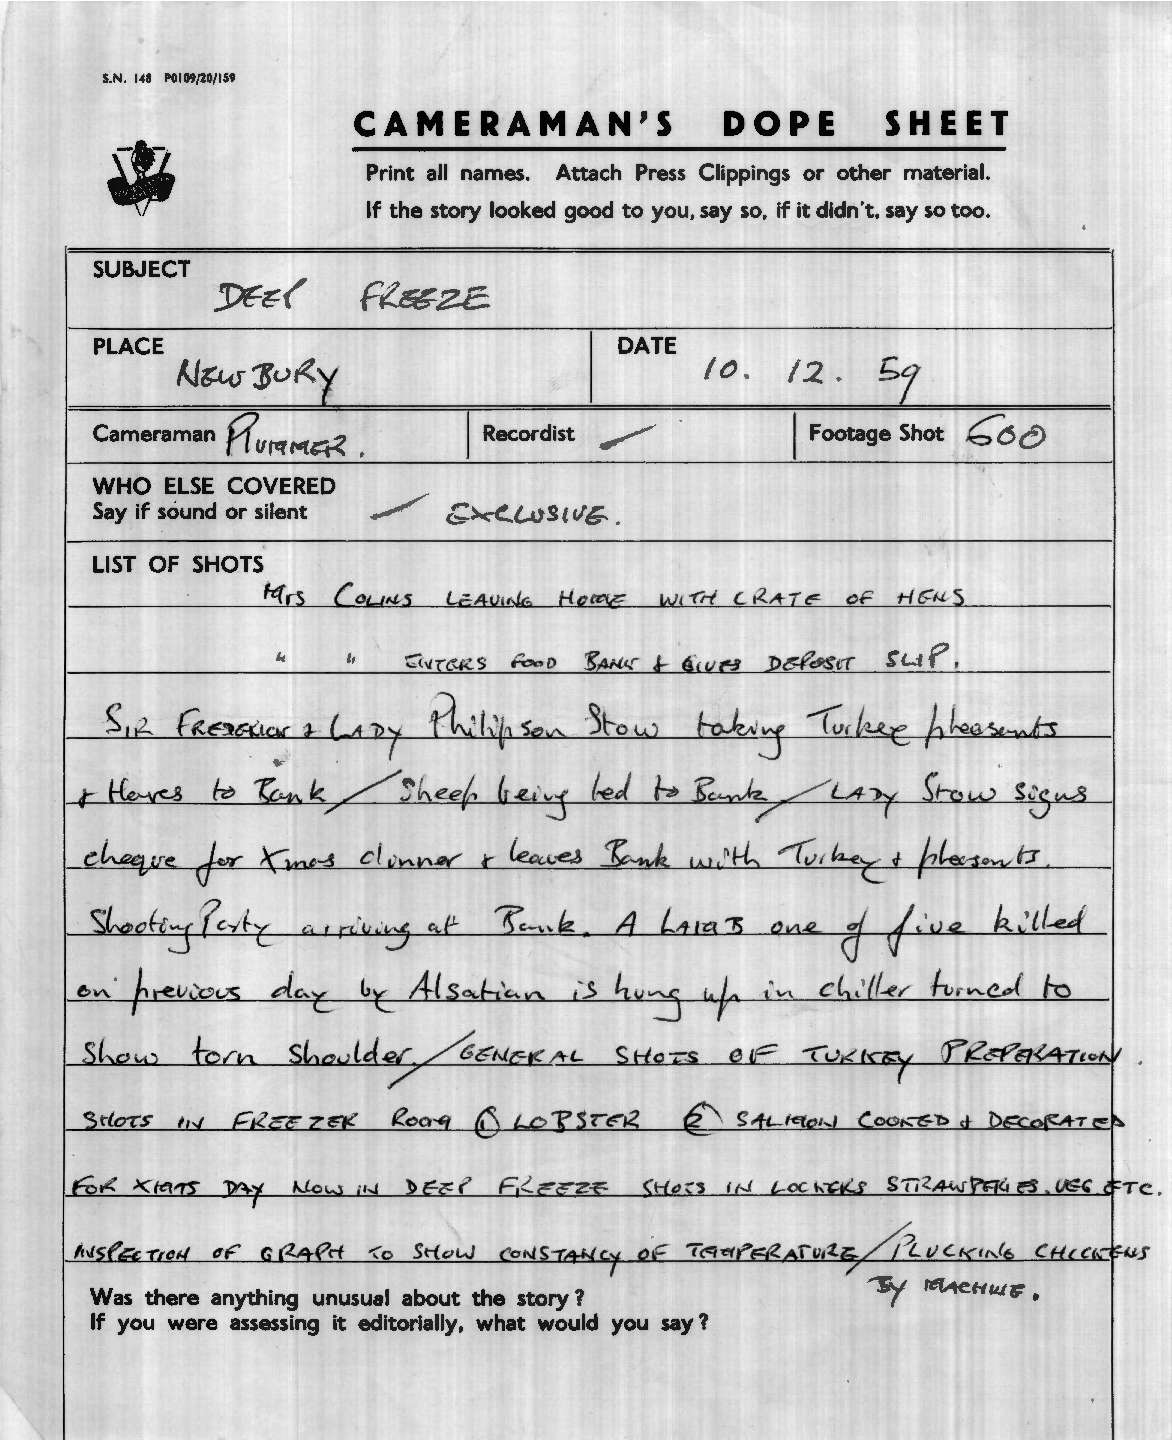 S.N. 148 P0109/20/159
CAMERAMAN'S DOPE SHEET
Print all names. Attach Press Clippings or other material.
If the story looked good to you, say so, if it didn't, say so too.
SUBJECT
DEEP FREEZE
PLACE
NEWBURY
DATE
10. 12. 59
Cameraman PLUMMER.
Recordist
Footage Shot 600
WHO ELSE COVERED
Say if sound or silent
EXCLUSIVE.
LIST OF SHOTS
Mrs COLINS LEAVING HOME WITH CRATE OF HENS
" " ENTERS FOOD BANK & GIVES DEPOSIT SLIP.
SIR FREDERICK & LADY Philipson Stow taking Turkey pheasants
& Hares to Bank / Sheep being led to Bank / LADY Stow signs
cheque for Xmas dinner & leaves Bank with Turkey & pheasants.
Shooting Party arriving at Bank. A LAMB one of five killed
on previous day by Alsatian is hung up in chiller turned to
Show torn shoulder. / GENERAL SHOTS OF TURKEY PREPERATION
SHOTS IN FREEZER ROOM ① LOBSTER ② SALMON COOKED & DECORATED
FOR XMAS DAY NOW IN DEEP FREEZE SHOTS IN LOCKERS STRAWBERIES. VEG. ETC.
INSPECTION OF GRAPH TO SHOW CONSTANCY OF TEMPERATURE / PLUCKING CHICKENS
BY MACHINE.
Was there anything unusual about the story?
If you were assessing it editorially, what would you say?